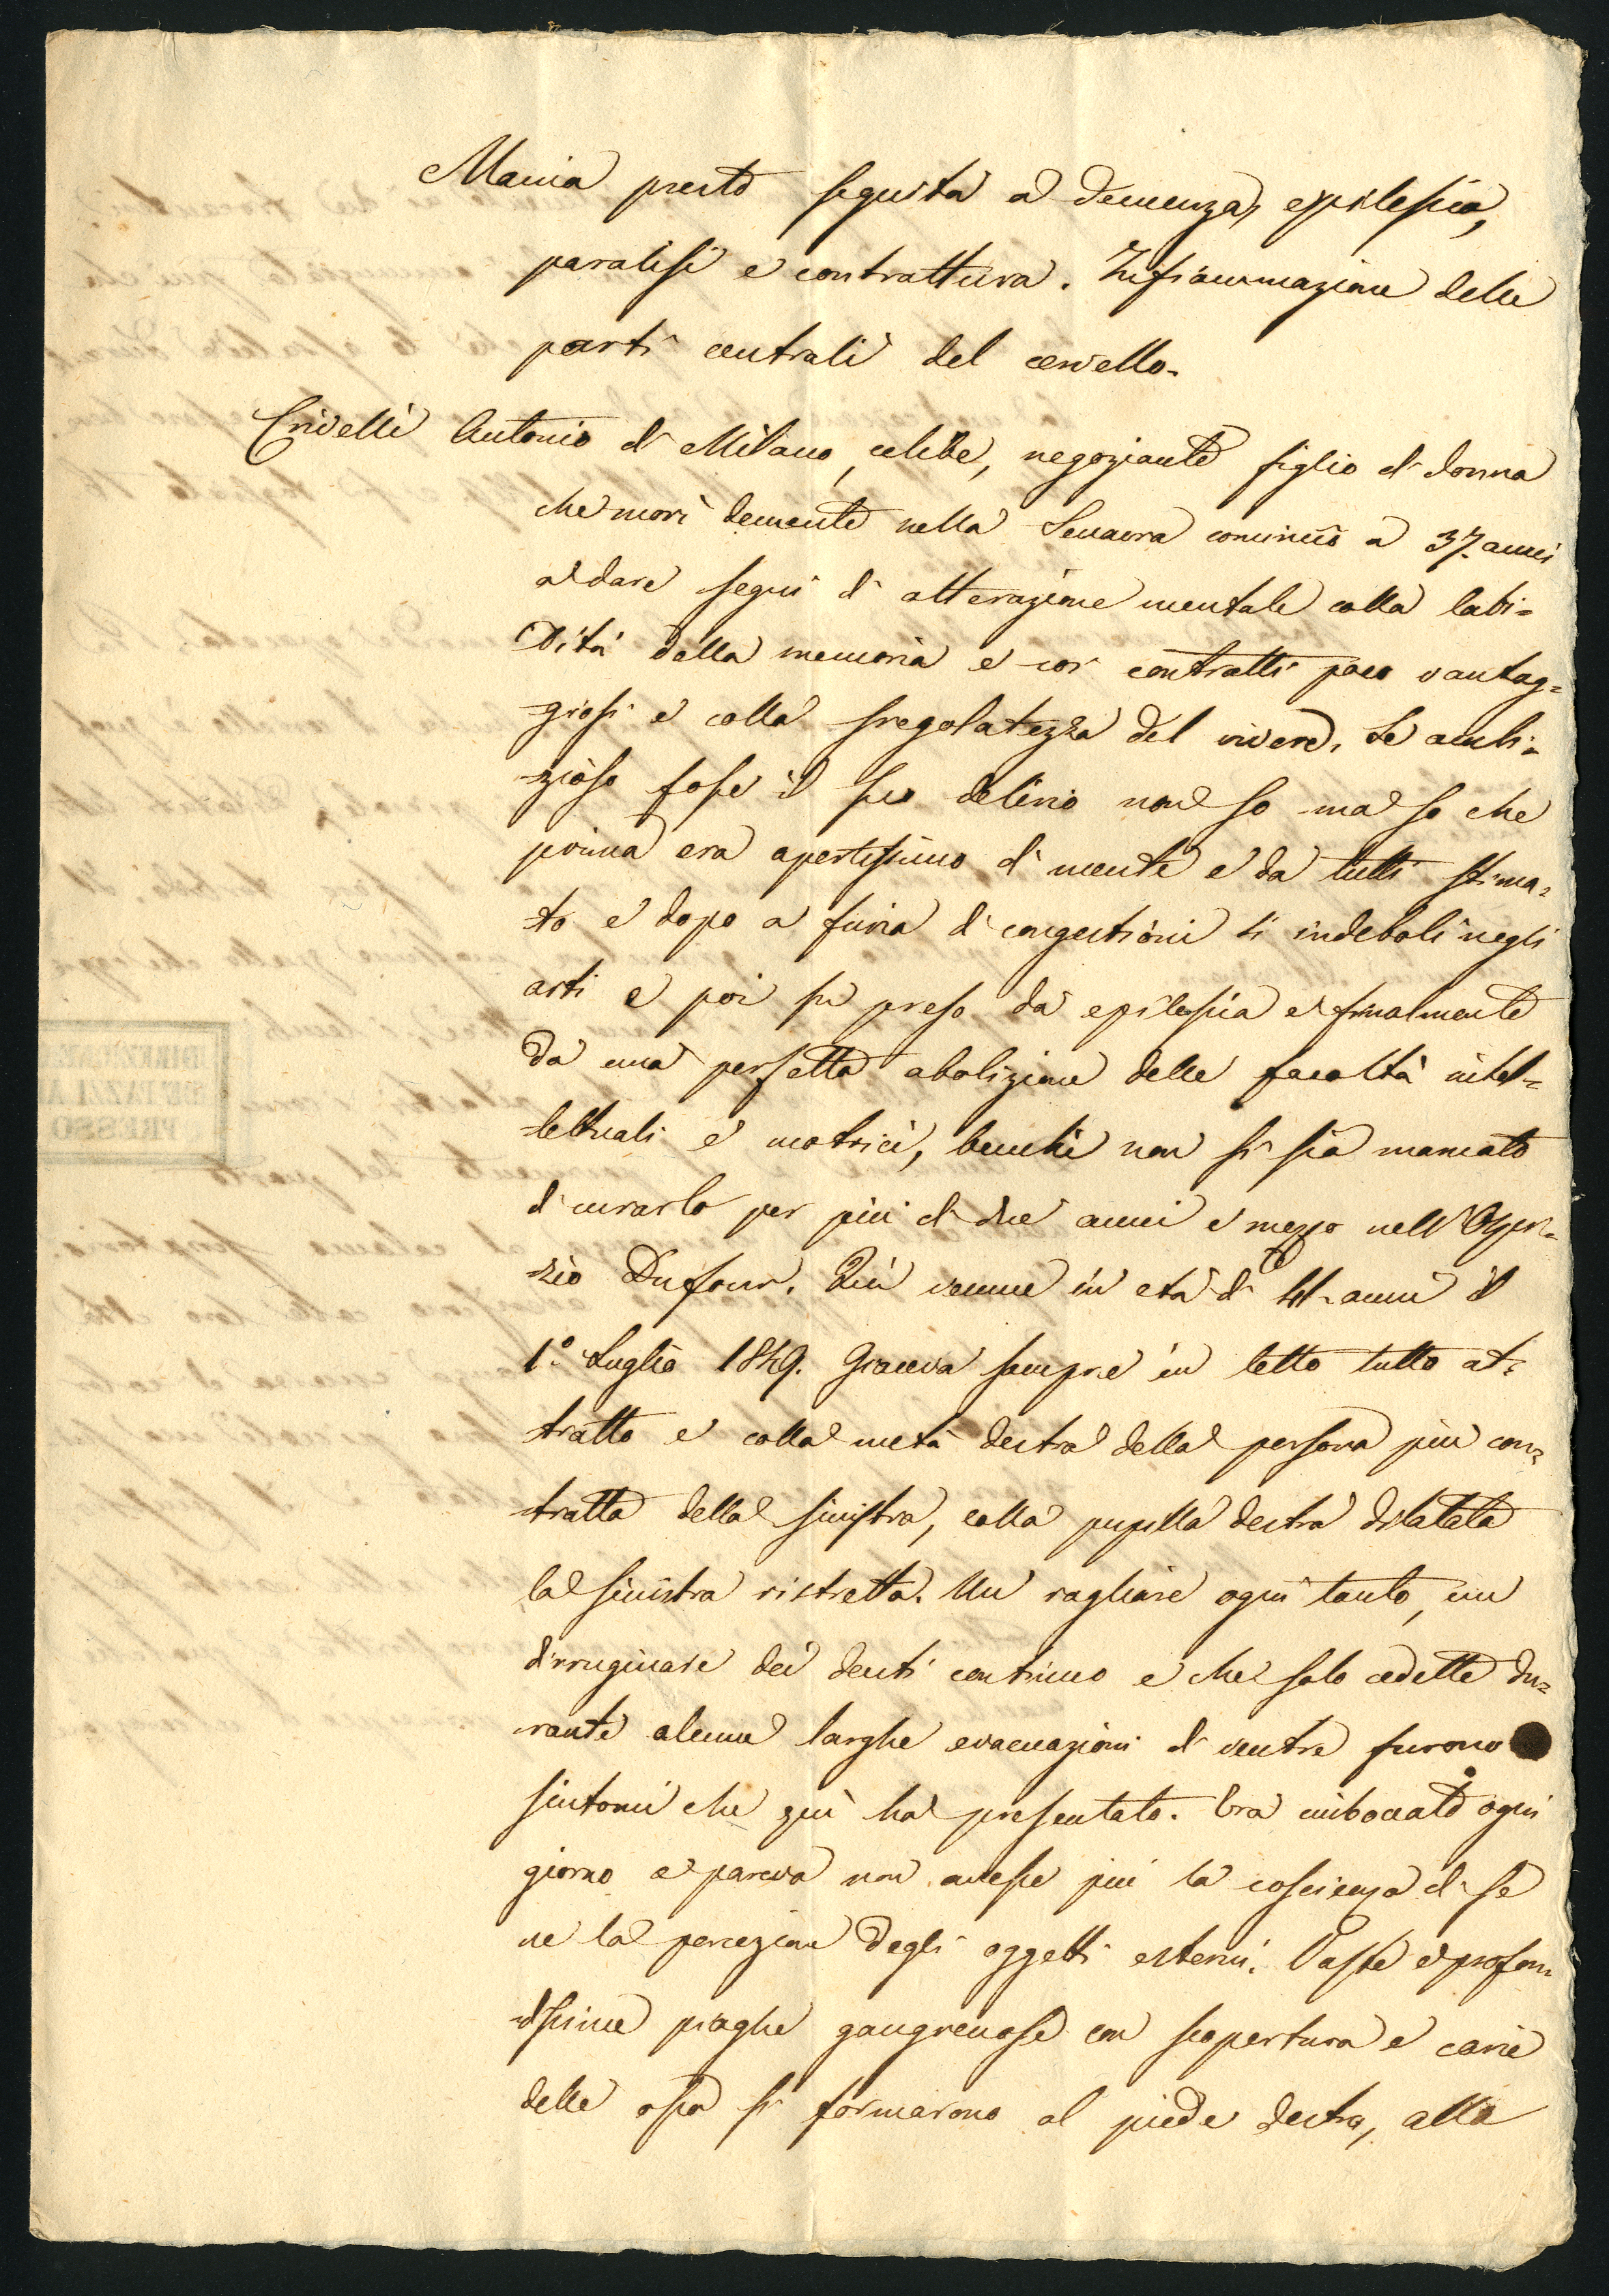 Mania presto seguita a demenza, epilessia,
paralisi e contrattura. Infiammazione delle
parti centrali del cervello.
Crivelli Antonio di Milano, celibe, negoziante figlio di donna
che morì demente nella Senavra cominciò a 37. anni
a dare segni di alterazione mentale colla labi=
dità della memoria e coi contratti poco vantag=
giosi e colla sregolatezza del vivere. Se ambi=
zioso fosse il suo delirio non so ma so che
prima era apertissimo di mente e da tutti stima=
to e dopo a furia di congestioni si indebolì negli
arti e poi fu preso da epilessia e finalmente
da una perfetta abolizione delle facoltà intel=
lettuali e motrici, benchè non si sia mancato
di curarlo per più di due anni e mezzo nell'Ospi=
zio Dufour. Quì venne in età di 41. anni il
1.° Luglio 1849. Giaceva sempre in letto tutto at=
tratto e colla metà destra della persona più con=
tratta della sinistra, colla pupilla destra dilatata
la sinistra ristretta. Un ragliare ogni tanto, un
dirruginare dei denti continuo e che solo cedette du=
rante alcune larghe evacuazioni di ventre furono
sintomi che quì ha presentato. Era imboccato ogni
giorno e pareva non avesse più la coscienza di se
ne la percezione degli oggetti esterni. Vaste e profon=
dissime piaghe gangrenose con scopertura e carie
delle ossa si formarono al piede destro, alla
DIREZIONE
DE' PAZZI A
PRESSO